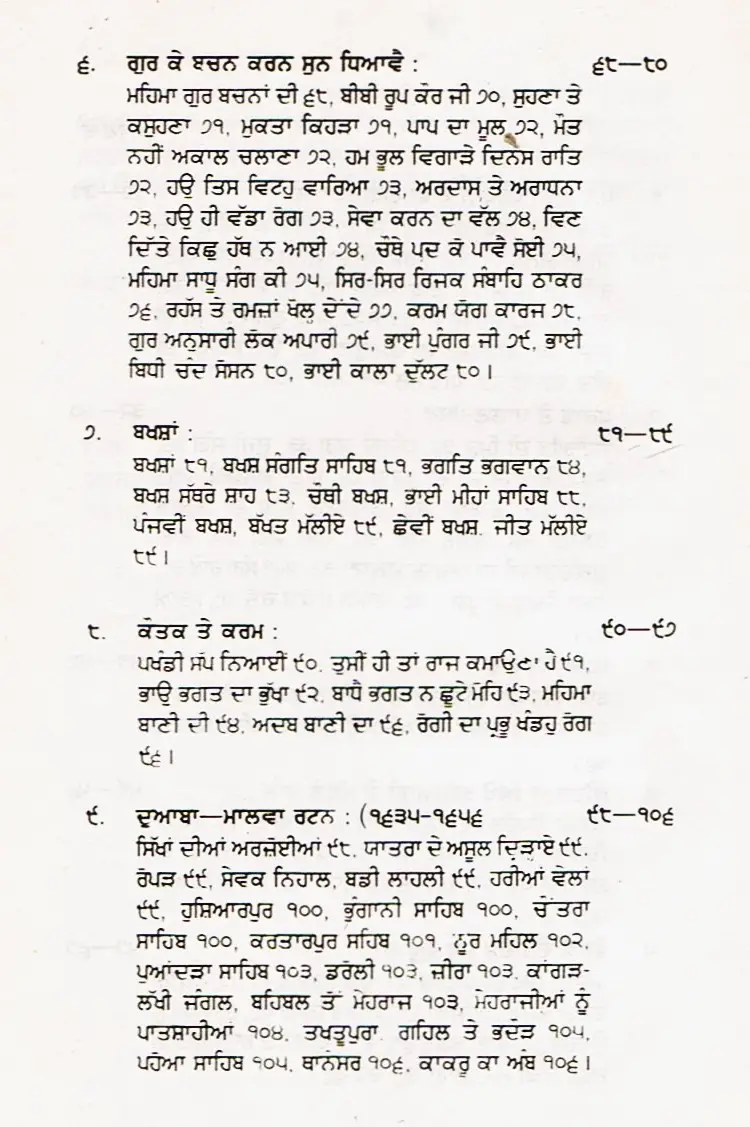 ੬. ਗੁਰ ਕੇ ਬਚਨ ਕਰਨ ਸੁਨ ਧਿਆਵੈ : ੬੮—੮੦
ਮਹਿਮਾ ਗੁਰ ਬਚਨਾਂ ਦੀ ੬੮, ਬੀਬੀ ਰੂਪ ਕੌਰ ਜੀ ੭੦, ਸੁਹਣਾ ਤੇ
ਕਸੁਹਣਾ ੭੧, ਮੁਕਤਾ ਕਿਹੜਾ ੭੧, ਪਾਪ ਦਾ ਮੂਲ ੭੨, ਮੌਤ
ਨਹੀਂ ਅਕਾਲ ਚਲਾਣਾ ੭੨, ਹਮ ਭੂਲ ਵਿਗਾੜੇ ਦਿਨਸ ਰਾਤਿ
੭੨, ਹਉ ਤਿਸ ਵਿਟਹੁ ਵਾਰਿਆ ੭੩, ਅਰਦਾਸ ਤੇ ਅਰਾਧਨਾ
੭੩, ਹਉ ਹੀ ਵੱਡਾ ਰੋਗ ੭੩, ਸੇਵਾ ਕਰਨ ਦਾ ਵੱਲ ੭੪, ਵਿਣ
ਦਿੱਤੇ ਕਿਛੁ ਹੱਥ ਨ ਆਈ ੭੪, ਚੌਥੇ ਪਦ ਕੋ ਪਾਵੈ ਸੋਈ ੭੫,
ਮਹਿਮਾ ਸਾਧੂ ਸੰਗ ਕੀ ੭੫, ਸਿਰ-ਸਿਰ ਰਿਜਕ ਸੰਬਾਹਿ ਠਾਕਰ
੭੬, ਰਹੱਸ ਤੇ ਰਮਜ਼ਾਂ ਖੋਲ੍ਹ ਦੇਂਦੇ ੭੭, ਕਰਮ ਯੋਗ ਕਾਰਜ ੭੮,
ਗੁਰ ਅਨੁਸਾਰੀ ਲੋਕ ਅਪਾਰੀ ੭੯, ਭਾਈ ਪੁੰਗਰ ਜੀ ੭੯, ਭਾਈ
ਬਿਧੀ ਚੰਦ ਸੋਸਨ ੮੦, ਭਾਈ ਕਾਲਾ ਦੁੱਲਟ ੮੦।
੭. ਬਖਸ਼ਾਂ : ੮੧—੮੯
ਬਖਸ਼ਾਂ ੮੧, ਬਖਸ਼ ਸੰਗਤਿ ਸਾਹਿਬ ੮੧, ਭਗਤਿ ਭਗਵਾਨ ੮੪,
ਬਖਸ਼ ਸੱਥਰੇ ਸ਼ਾਹ ੮੩, ਚੌਥੀ ਬਖਸ਼, ਭਾਈ ਮੀਹਾਂ ਸਾਹਿਬ ੮੮,
ਪੰਜਵੀਂ ਬਖਸ਼, ਬੱਖਤ ਮੱਲੀਏ ੮੯, ਛੇਵੀਂ ਬਖਸ਼. ਜੀਤ ਮੱਲੀਏ
੮੯।
੮. ਕੌਤਕ ਤੇ ਕਰਮ : ੯੦—੯੭
ਪਖੰਡੀ ਸੱਪ ਨਿਆਈਂ ੯੦. ਤੁਸੀਂ ਹੀ ਤਾਂ ਰਾਜ ਕਮਾਉਣਾ ਹੈ ੯੧,
ਭਾਉ ਭਗਤ ਦਾ ਭੁੱਖਾ ੯੨, ਬਾਧੈ ਭਗਤ ਨ ਛੂਟੇ ਮੋਹਿ ੯੩, ਮਹਿਮਾ
ਬਾਣੀ ਦੀ ੯੪, ਅਦਬ ਬਾਣੀ ਦਾ ੯੬, ਰੋਗੀ ਦਾ ਪ੍ਰਭੂ ਖੰਡਹੁ ਰੋਗ
੯੬।
੯. ਦੁਆਬਾ—ਮਾਲਵਾ ਰਟਨ : (੧੬੩੫-੧੬੫੬ ੯੮—੧੦੬
ਸਿੱਖਾਂ ਦੀਆਂ ਅਰਜ਼ੋਈਆਂ ੯੮. ਯਾਤਰਾ ਦੇ ਅਸੂਲ ਦ੍ਰਿੜਾਏ ੯੯.
ਰੋਪੜ ੯੯, ਸੇਵਕ ਨਿਹਾਲ, ਬਡੀ ਲਾਹਲੀ ੯੯, ਹਰੀਆਂ ਵੇਲਾਂ
੯੯, ਹੁਸ਼ਿਆਰਪੁਰ ੧੦੦, ਭੁੰਗਾਨੀ ਸਾਹਿਬ ੧੦੦, ਚੌਂਤਰਾ
ਸਾਹਿਬ ੧੦੦, ਕਰਤਾਰਪੁਰ ਸਹਿਬ ੧੦੧, ਨੂਰ ਮਹਿਲ ੧੦੨,
ਪੁਆਂਦੜਾ ਸਾਹਿਬ ੧੦੩, ਡਰੋਲੀ ੧੦੩, ਜ਼ੀਰਾ ੧੦੩, ਕਾਂਗੜ-
ਲੱਖੀ ਜੰਗਲ, ਬਹਿਬਲ ਤੋਂ ਮੇਹਰਾਜ ੧੦੩, ਮੇਹਰਾਜੀਆਂ ਨੂੰ
ਪਾਤਸ਼ਾਹੀਆਂ ੧੦੪, ਤਖਤੂਪੁਰਾ ਗਹਿਲ ਤੇ ਭਦੌੜ ੧੦੫,
ਪਹੋਆ ਸਾਹਿਬ ੧੦੫, ਥਾਨੇਸਰ ੧੦੬, ਕਾਕਰੂ ਕਾ ਅੰਬ ੧੦੬।